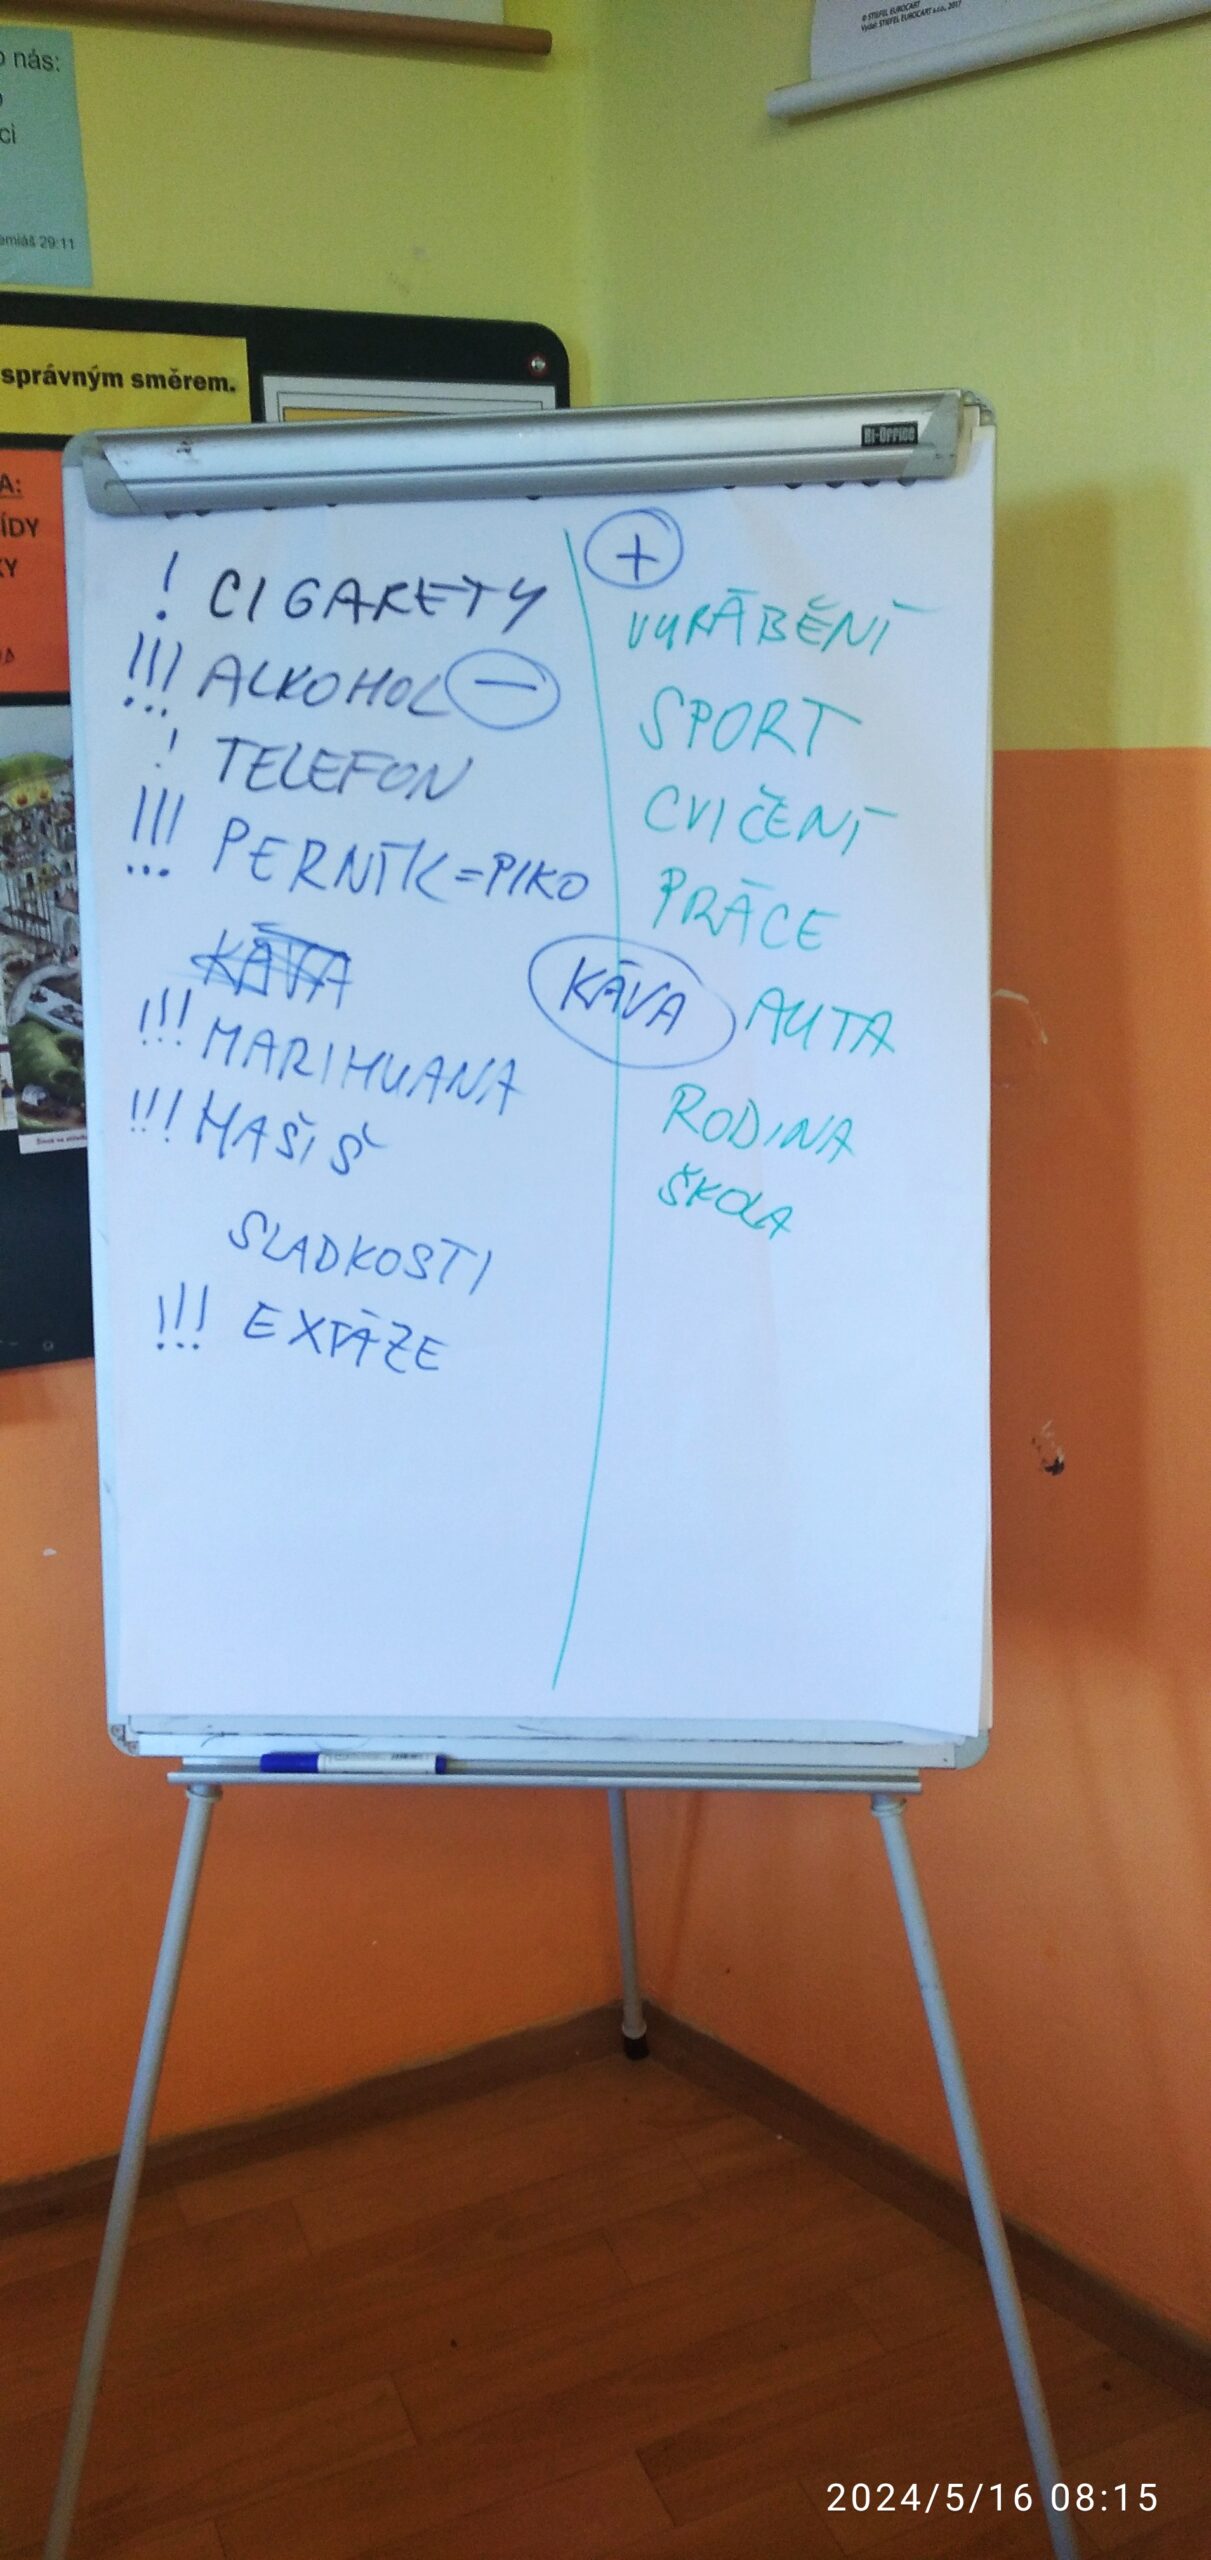 © STIEFEL EUROCART
Vydal: STIEFEL EUROCART s.r.o., 2017
o nás:
ci
29:11
správným směrem.
A:
Bi-Office
! CIGARETY
!!! ALKOHOL −
! TELEFON
!!! PERNÍK = PIKO
KÁVA
!!! MARIHUANA
!!! HAŠIŠ
SLADKOSTI
!!! EXTÁZE
+
VYRÁBĚNÍ
SPORT
CVIČENÍ
PRÁCE
KÁVA AUTA
RODINA
ŠKOLA
2024/5/16 08:15